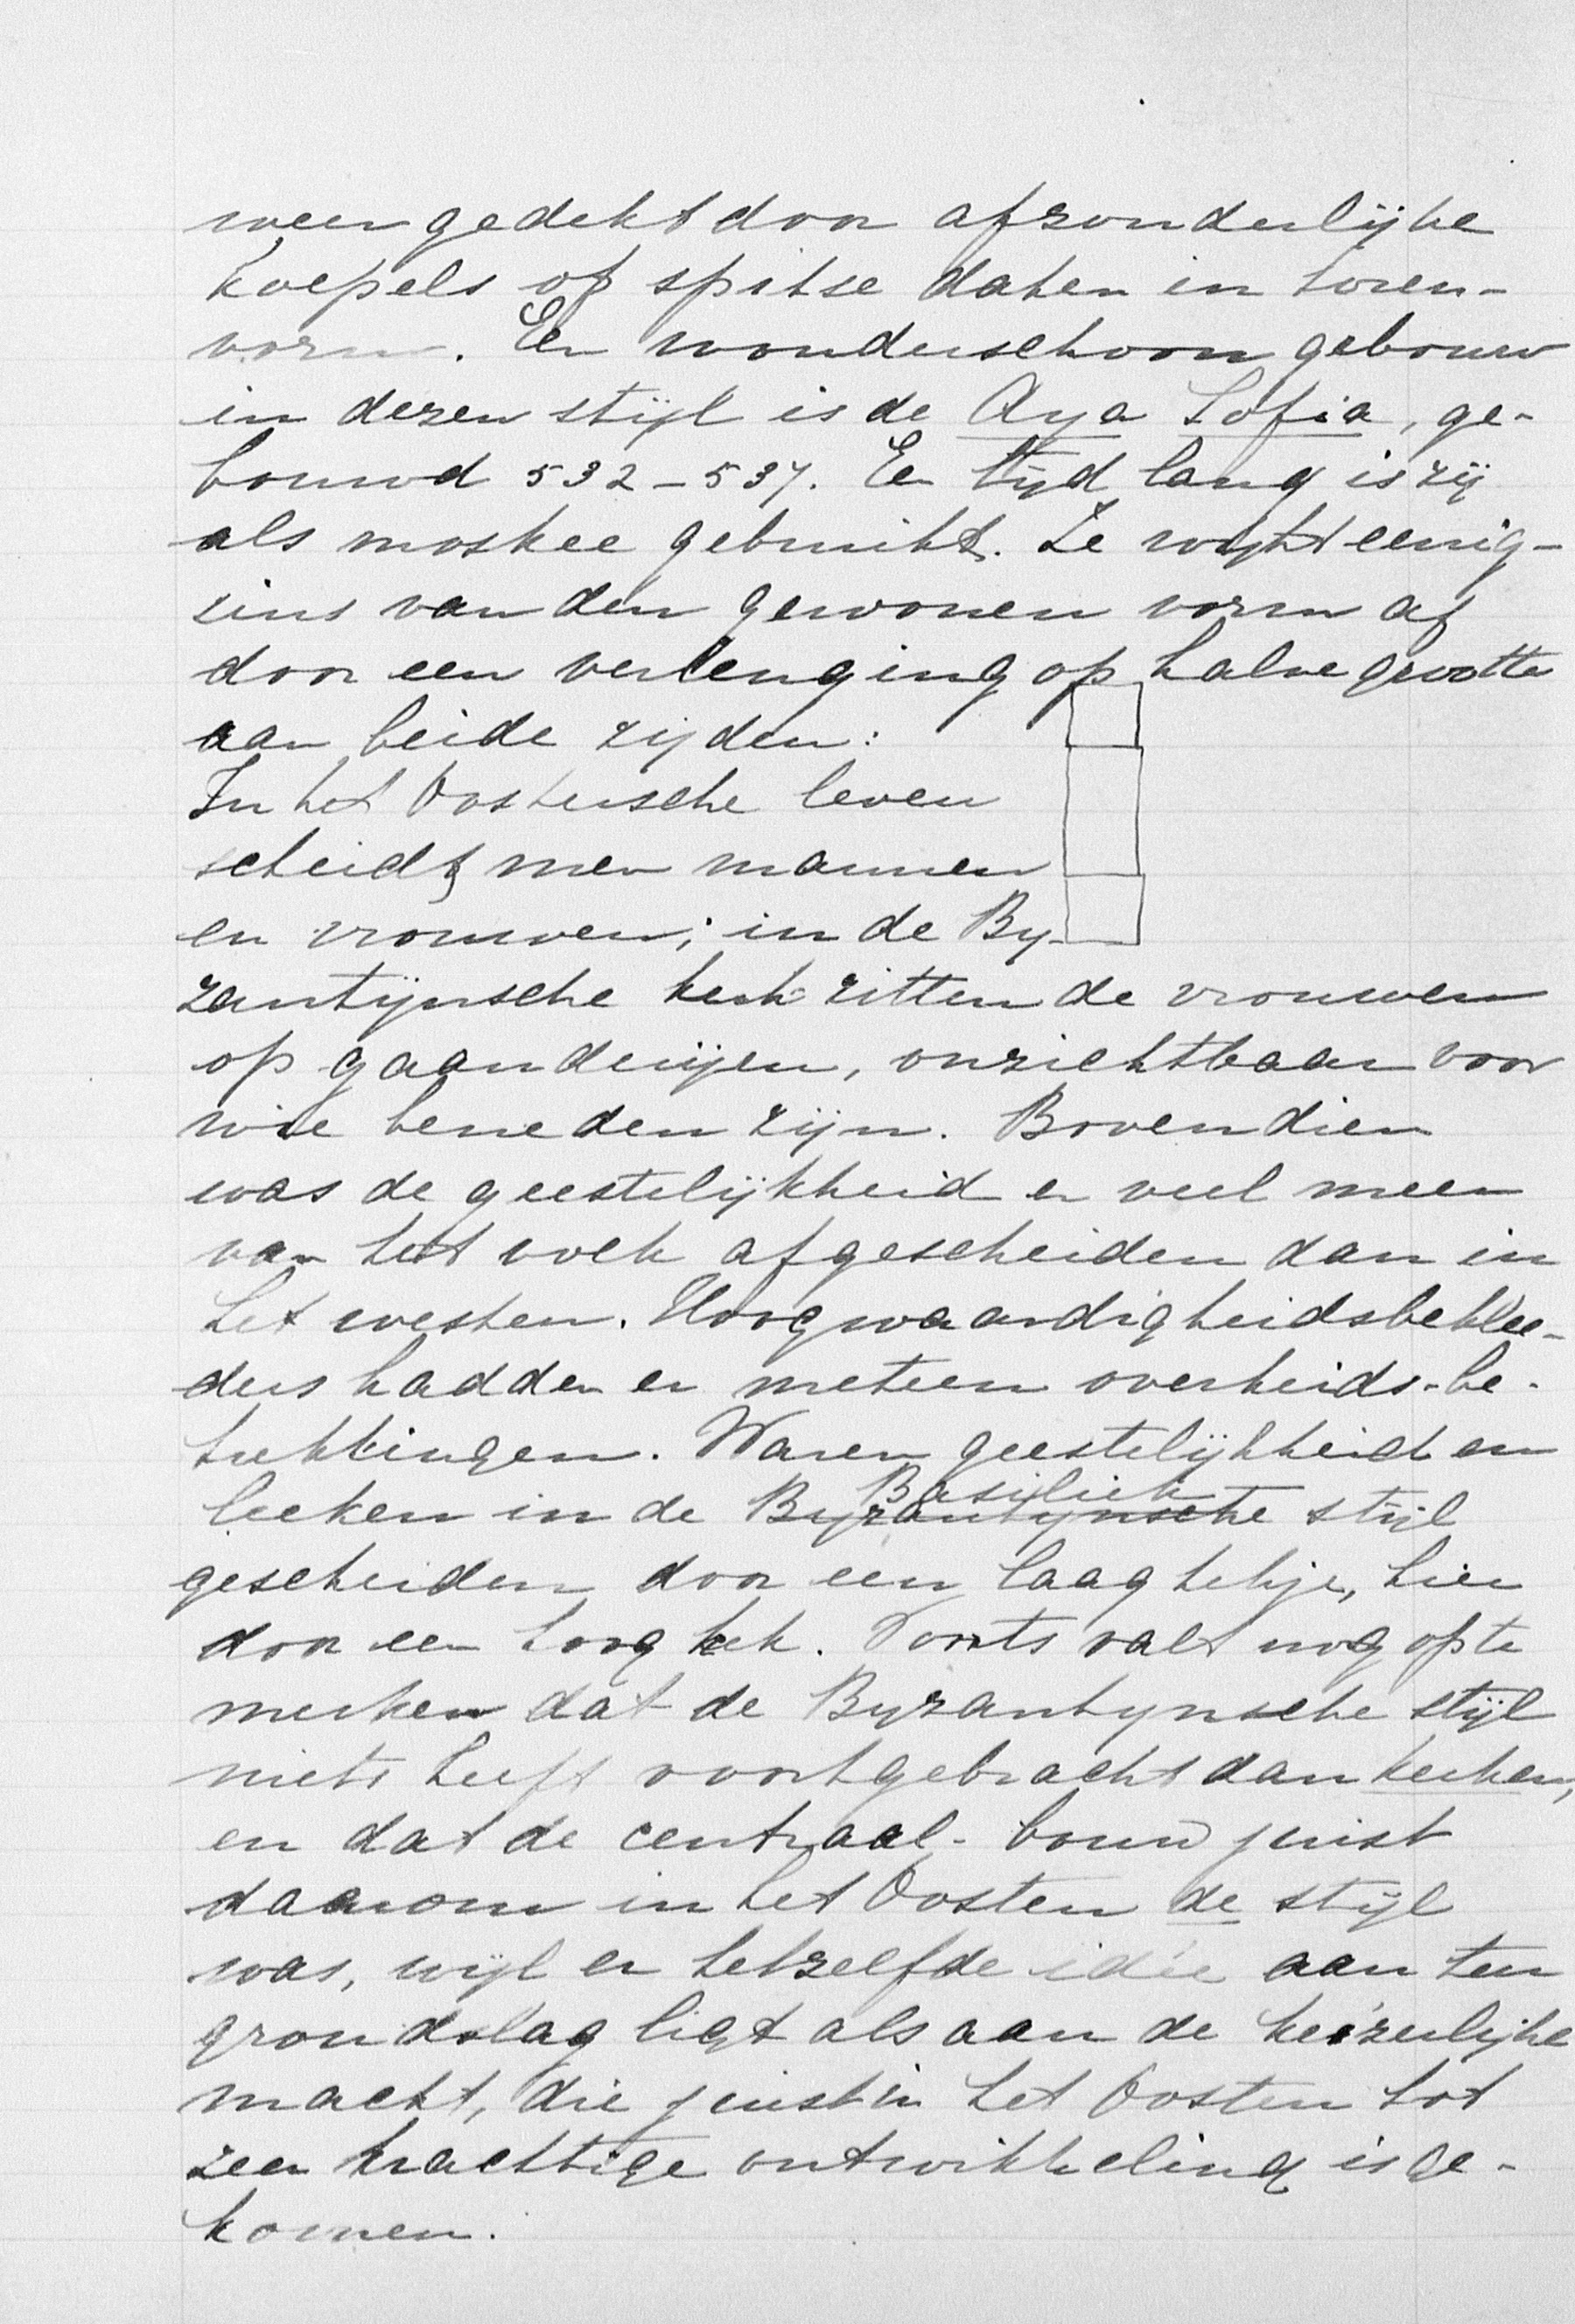 weer gedekt door afzonderlijke
koepels of spitse daken in toren-
vorm. Een wonderschoon gebouw
in dezen stijl is de Aya Sofia, ge-
bouwd 532-537. Een tijd lang is zij
als moskee gebruikt. Ze wijkt eenig-
zins van den gewonen vorm af
door een verlenging op halve grootte
aan beide zijden:
In het Oostersche leven
scheidt men mannen
en vrouwen; in de By-
zantijnsche kerk zitten de vrouwen
op gaanderijen, onzichtbaar voor
wie beneden zijn. Bovendien
was de geestelijkheid er veel meer
van het volk afgescheiden dan in
het westen. Hoogwaardigheidsbeklee-
ders hadden er meteen overheids-be-
trekkingen. Waren geestelijkheid en
Basiliek
leeken in de Byzantynsche stijl
gescheiden door een laag hekje, hier
door een hoog hek. Voorts valt nog op te
merken dat de Byzantynsche stijl
niets heeft voortgebracht dan kerken,
en dat de centraal-bouw juist
daarom in het Oosten de stijl
was, wijl er hetzelfde idée aan ten
grondslag ligt als aan de keizerlijke
macht, die juist in het Oosten tot
zeer krachtige ontwikkeling is ge-
komen.